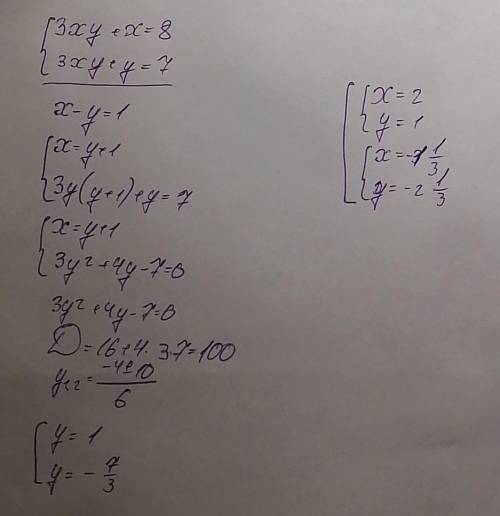 {3xy + x = 8
{3xy + y = 7
x - y = 1
{x = y+1
{3y(y+1)+y = 7
{x = y+1
{3y² + 4y - 7 = 0
3y² + 4y - 7 = 0
D = 16 + 4 · 3 · 7 = 100
y₁,₂ = (-4 ± 10)/6
[y = 1
[y = - 7/3
[{x = 2
{y = 1
{x = -1 1/3
{y = -2 1/3